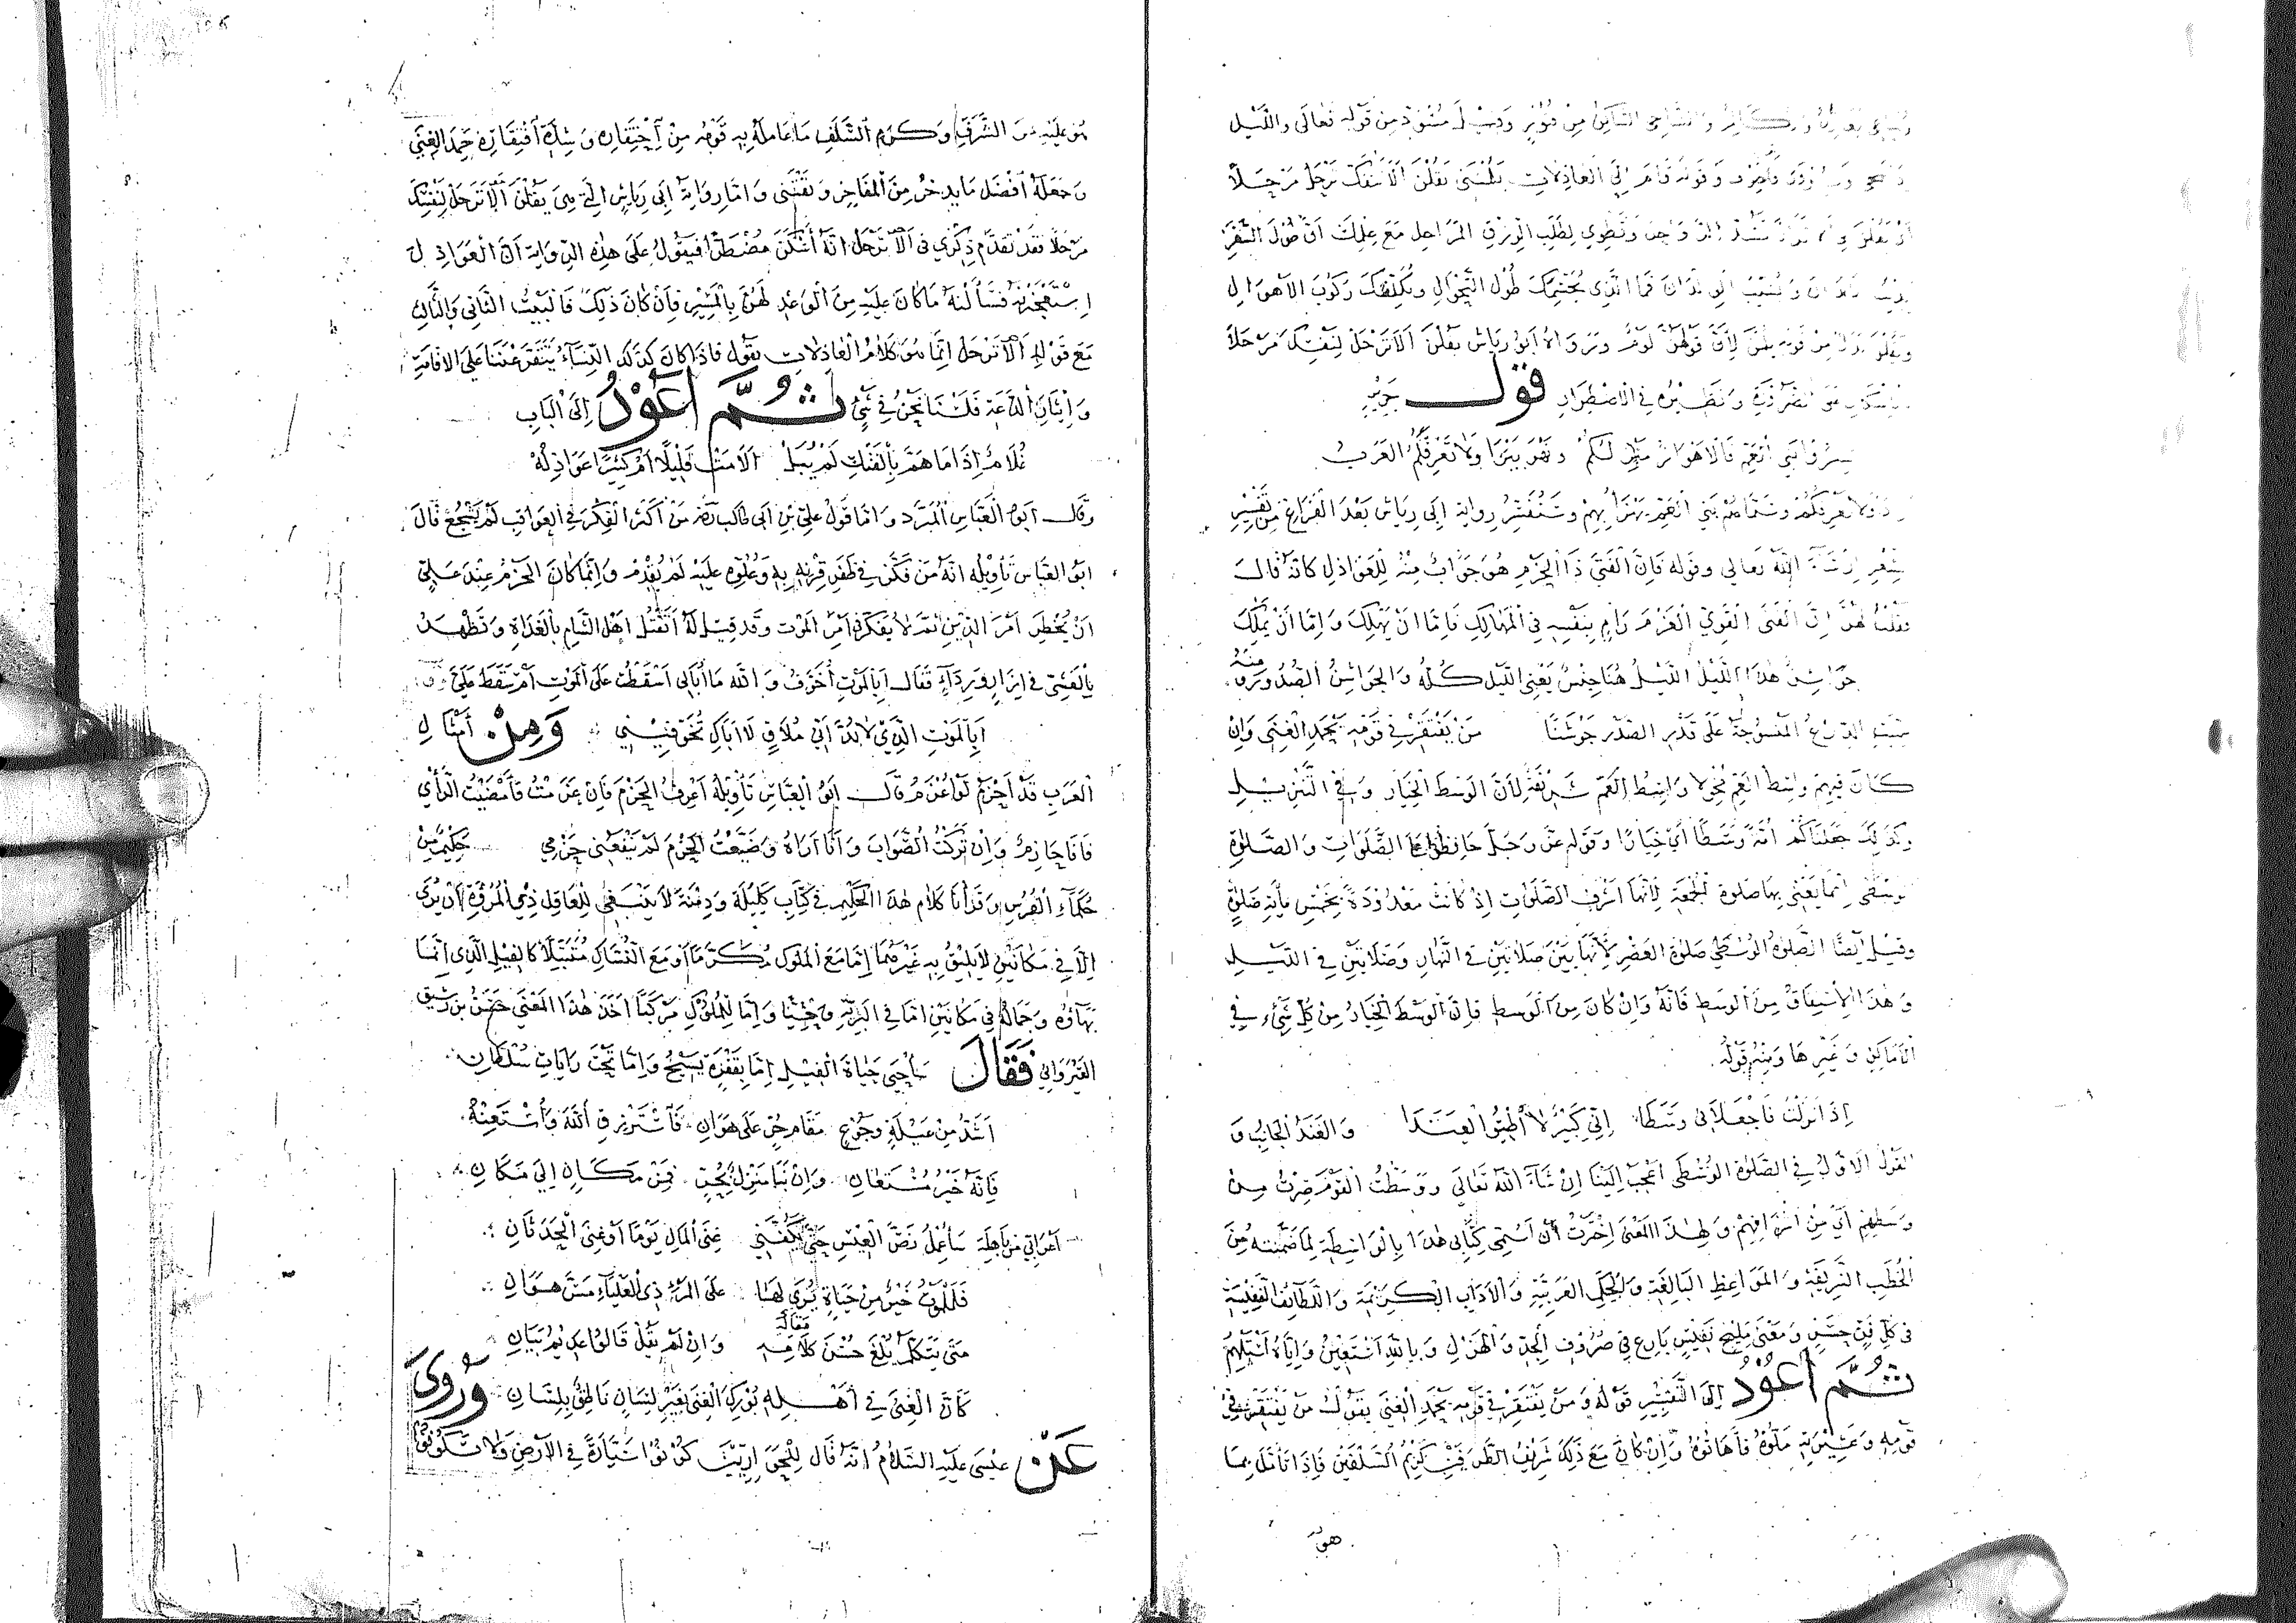 من قوله تعالى والليل
وقوله قام إلي العاذلات يلمنني يقلن ألا تنفك ترحل مرحلا
وتطوي لطلب الرزق المراحل مع علمك أن طول السفر
فما الذي يجشمك طول التجوال ويكلفك ركوب الأهوال
لأن قولهن لوم ويرواه أبو رياش يقلن ألا ترحل لنفسك مرحلا
ونظيره في الاضطرار قول جرير
سيروا بني العم فالأهواز منزلكم ونهر تيرا ولا تعرفكم العرب
بني العم يهزأ بهم وسنفسر رواية أبي رياش بعد الفراغ من تفسير
إن شاء الله تعالى وقوله فإن الفتى ذا الحزم هو جواب منه للعواذل كأنه قال
فقلت لهن إن الفتى القوي العزم رام بنفسه في المهالك فإما أن يهلك وإما أن يملك
جواشن هذا الليل الليل هنا جنس يعني الليل كله والجواشن الصدور ومنه
الدرع المنسوجة على قدر الصدر جوشنا من يفتقر في قومه يحمد الغنى وإن
كان فيهم واسط العم مخولا واسط العم شريفه لأن الوسط الخيار وفي التنزيل
وكذلك جعلناكم أمة وسطا أي خيارا وقوله عز وجل حافظوا على الصلوات والصلاة
الوسطى إنما يعني بها صلوة الجمعة لأنها أشرف الصلوات إذ كانت معدودة بخمس مأية صلوة
وقيل أيضا الصلوة الوسطى صلوة العصر لأنها بين صلاتين في النهار وصلاتين في الليل
وهذا الاشتقاق من الوسط فانه وان كان من الوسط فإن الوسط الخيار من كل شيء في
الأماكن وغيرها ومنه قوله
إذا نزلت فاجعلاني وسطا إني كبير لا أطيق العندا والعند الجانب و
القول الأول في الصلوة الوسطى أعجب إلينا إن شاء الله تعالى ووسطت القوم صرت من
وسطهم أي من أشرافهم ولهذا المعنى اخترت أن أسمي كتابي هذا بالواسطة لما ضمنته من
الخطب الشريفة والمواعظ البالغة والحكم العربية والآداب الكريمة واللطائف النفيسة
في كل فن حسن ومعنى مليح نفيس بارع في صروف الجد والهزل وبالله أستعين وإياه
ثم أعود إلى التفسير قوله ومن يفتقر في قومه يحمد الغنى يقول من يفتقر في
قومه وعشيرته ملوه فأهانوه وإن كان مع ذلك شريف الطرفين كريم السلفين فإذا تأمل ما
هو
هو عليه من الشرف وكرم السلف ما عامله به قومه من احتقاره وشدة افتقاره حمد الغنى
وجعله أفضل ما يدخر من المفاخر ويقتنى وأما رواية أبي رياش التي هي يقلن ألا ترحل لنفسك
مرحلا فقد تقدم ذكري في ألا ترحل أنه أسكن مضطرا فيقول على هذه الرواية أن العواذل
استعجزنه فسألنه ما كان عليه من الوعد لهن بالمسير فإن كان ذلك فالبيت الثاني والثالث
مع قوله ألا ترحل إنما هو كلام العاذلات يقول فاذا كان كذلك النساء يتفرعننا على الاقامة
وإتيان الدعة فلسنا نحن في شيء ثم أعود إلى الباب
غلام إذا ما هم بالفتك لم يبل ألامت قليلا أم كثيرا عواذله
وقال أبو العباس المبرد وأما قول علي بن أبي طالب رضه من أكثر الفكر في العواقب لم يشجع قال
أبو العباس تأويله أنه من فكر في ظفر قرنه به وعلوه عليه لم يقدم وإنما كان الحزم عند علي
أن يخطر أمر الدين ثم لا يفكر في أمر الموت وقد قيل له أتقتل أهل الشام بالغداة وتظهر
بالعشي في إزار ورداء فقال أبالموت أخوف والله ما أبالي أسقطت على الموت أم سقط علي
أبالموت الذي لا بد أني ملاق لا أباك تخوفيني ومن أمثال
العرب قد أحزم لو أعزم قال أبو العباس تأويله أعرف الحزم فإن عزمت فأمضيت الرأي
فأنا حازم وإن تركت الصواب وأنا أراه وضيعت الحزم لم ينفعني حزمي حكيم من
حكماء الفرس وقرأنا كلام هذا الحكيم في كتاب كليلة ودمنة لا ينبغي للعاقل ذي المروة أن يرى
إلا في مكانين لا يليق به غيرهما إما مع الملوك مكرما أو مع النساك متبتلا كالفيل الذي إنما
بهاؤه وجماله في مكانين إما في البرية وحشيا وإما للملوك مركبا أخذ هذا المعنى حسن بن رشيق
القيرواني فقال سأحيى حياة الفيل إما بقفرة يسيح وإما تحت رايات سلطان
أشد من عيلة وجوع مقام حر على هوان فاسترزق الله واستعنه
فإنه خير مستعان وإن نبا منزل بحر فمن مكان إلى مكان
أعرابي من باهلة سأعمل نص العيس حتى يكفني غنى المال يوما أو غنى الحدثان
فللموت خير من حياة يرى لها على المرء ذي العلياء مس هوان
متى يتكلم يلغ حسن كلامه مقاله وإن لم يقل قالوا عديم بيان
كأن الغنى في أهله بورك الغنى بغير لسان ناطق بلسان وروي
عن عيسى عليه السلام أنه قال للحواريين كونوا سيارة في الأرض ولا تكونوا